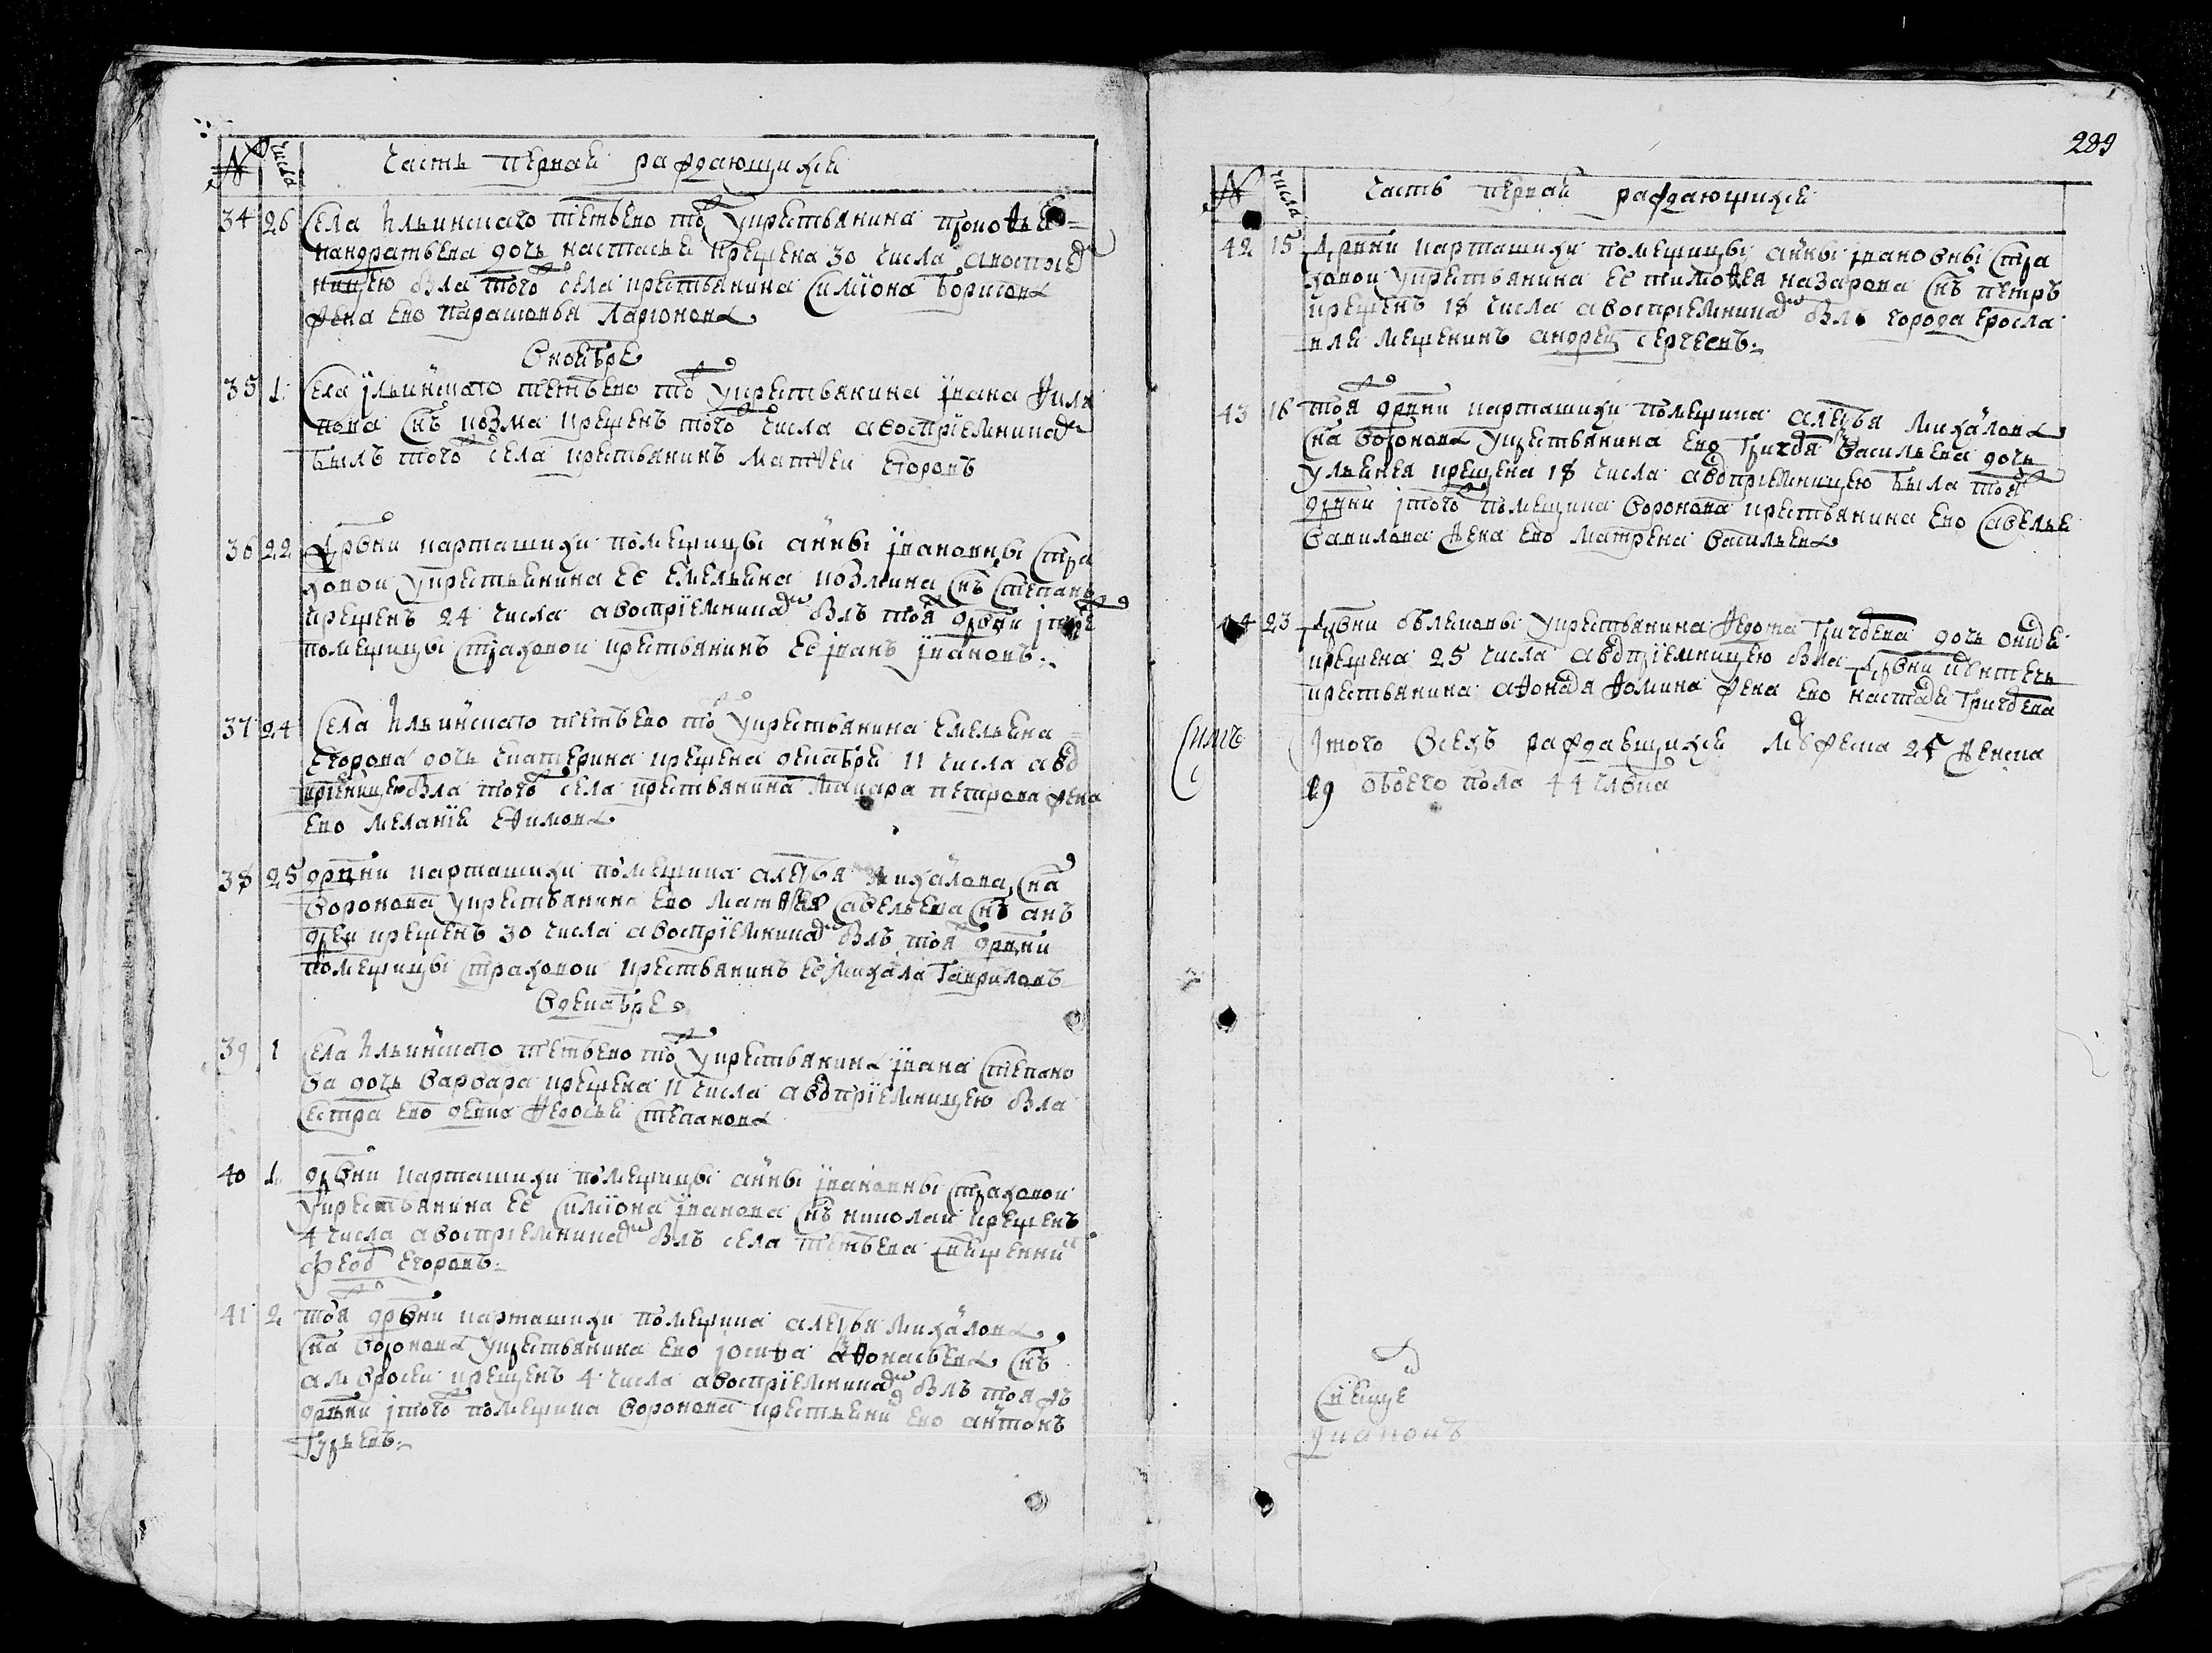 289
№ числа Часть первая раждающихся
34 26 Села Ильинскаго тетьево тож у крестьянина прокофья
кандратьева дочь настасья крещена 30 числа авоспрїем
ницею бла того села крестьянина Симїона борисова
жена ево парасковья Ларїонова
В ноябре
35 1 Села Ильинскаго тетьево тож у крестьянина Iвана Фили
пова снъ козма крещенъ того числа а воспрїемникомъ
былъ того села крестьянинъ матфеи егоровъ
36 22 Дрвни карташихи помещицы анны Iвановны Стра
ховои у крестьянина ее емельяна козмина снъ Степанъ
крещенъ 24 числа а воспрїемникомъ блъ тоя ж дрвни
помещицы Страховои крестьянинъ ее Iванъ Iвановъ
37 24 Села Ильинскаго тетьево тож у крестьянина Емельяна
Егорова дочь екатерина крещена декабря 11 числа авос
прїемницею бла того села крестьянина Макара петрова жена
ево меланїя ефимова
38 25 дрвни карташихи помещика алексея михаилова сна
Воронова у крестьянина ево матфея Савельева снъ ан
дреи крещенъ 30 числа а воспрїемникомъ блъ тоя ж дрвни
помещицы Страховои крестьянинъ ее михаила Гавриловъ
В декабре
39 1 Села Ильинскаго тетьево тож у крестьянина Iвана Степано
ва дочь варвара крещена 11 числа а воспрїемницею бла
сестра ево девка федосья Степанова
40 1 дрвни карташихи помещицы анны Iвановны Страховои
у крестьянина ее Симїона Iванова снъ николаи крещенъ
4 числа а воспрїемникомъ блъ села тетьева священник
феод егоровъ
41 2 тоя ж дрвни карташихи помещика алексея михаилова
сна Воронова у крестьянина ево Iосифа афонасьева снъ
амвросеи крещенъ 4 числа а воспрїемникомъ блъ тоя жъ
дрвни I того ж помещика Воронова крестьянин ево антонъ
Гурьевъ
№ числа Часть первая раждающихся
42 15 Дрвни карташихи помещицы анны Iвановны Стра
ховои у крестьянина ее тимофея назарова снъ петръ
крещенъ 18 числа а воспрїемникомъ блъ города еросла
вля мещенинъ андреи сергеевъ
43 16 тоя ж дрвни карташихи помещика алексея михаилова
сна Воронова у крестьянина ево Григорья Васильева дочь
ульянея крещена 18 числа а воспрїемницею была тоя ж
дрвни I того ж помещика Воронова крестьянина ево Савелья
Вавилова жена ево матрена васильева
44 23 Дрвни у крестьянина федота Григорьева дочь
крещена 25 числа а воспрїемницею бла Дрвни
крестьянина афонасья фомина жена ево настасья Григорьева
Iтого Всехъ раждаещихся мужеска 25 женска
19 обоего пола 44 члвка
Свяще
Iвановъ